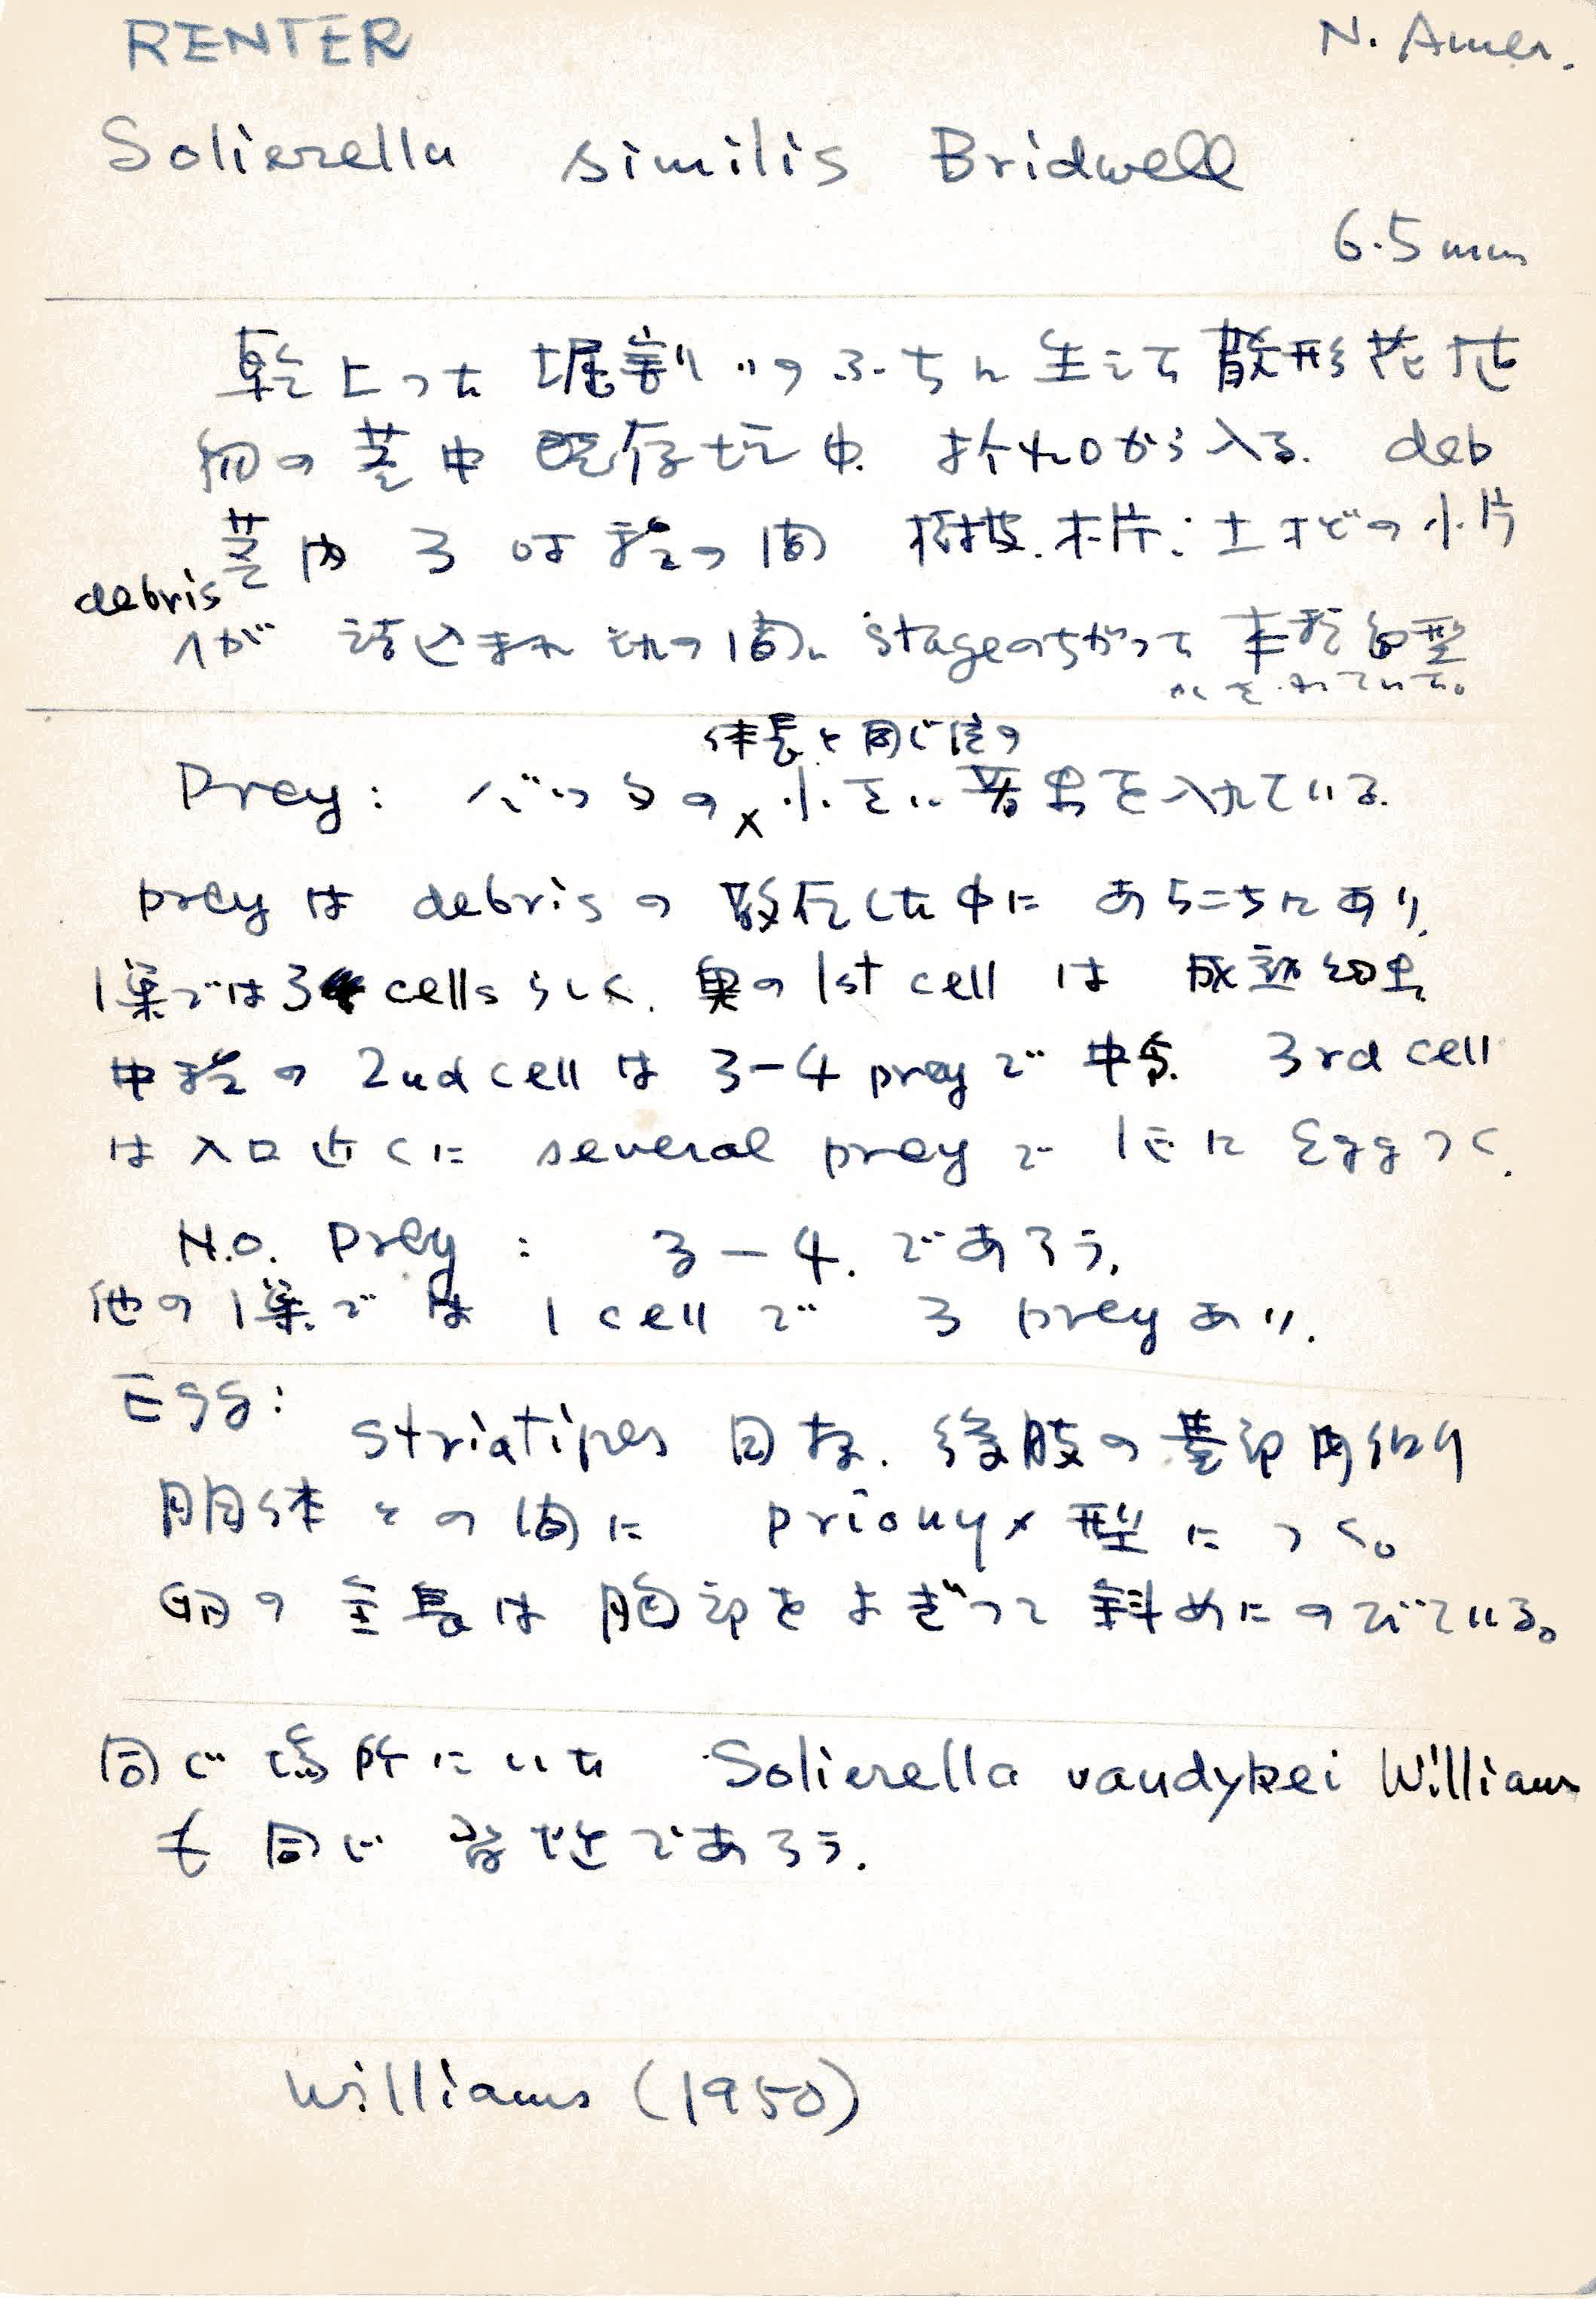 RENTER N. Amer.
Solierella similis Bridwell
6.5 mm
乾上った堀割りのふちに生えた散形花植
物の茎中 既存坑中 折れ口から入る. deb
茎内 3 ㎝程の間 樹枝. 木片. 土などの小片
debris
が 詰込まれ その間に stageのちがった
Prey: バッタの 小さい若虫を入れている.
体長と同じ位の
preyは debrisの 散在した中に あちこちにあり,
1巣では3 cellsらしく. 奥の 1st cell は 成熟幼虫,
中程の 2nd cellは 3-4 preyで 中. 3rd cell
は入口近くに several preyで 1匹に Eggつく.
N.O. Prey : 3-4. であろう.
他の1巣では 1 cellで 3 preyあり.
Egg:
striatipes 同な. 後肢の基部内側
胴体との間に prionyx型につく。
卵の全長は胸部をよぎって斜めにのびている。
同じ場所にいた Solierella vandykei Williams
も同じ習性であろう.
Williams (1950)